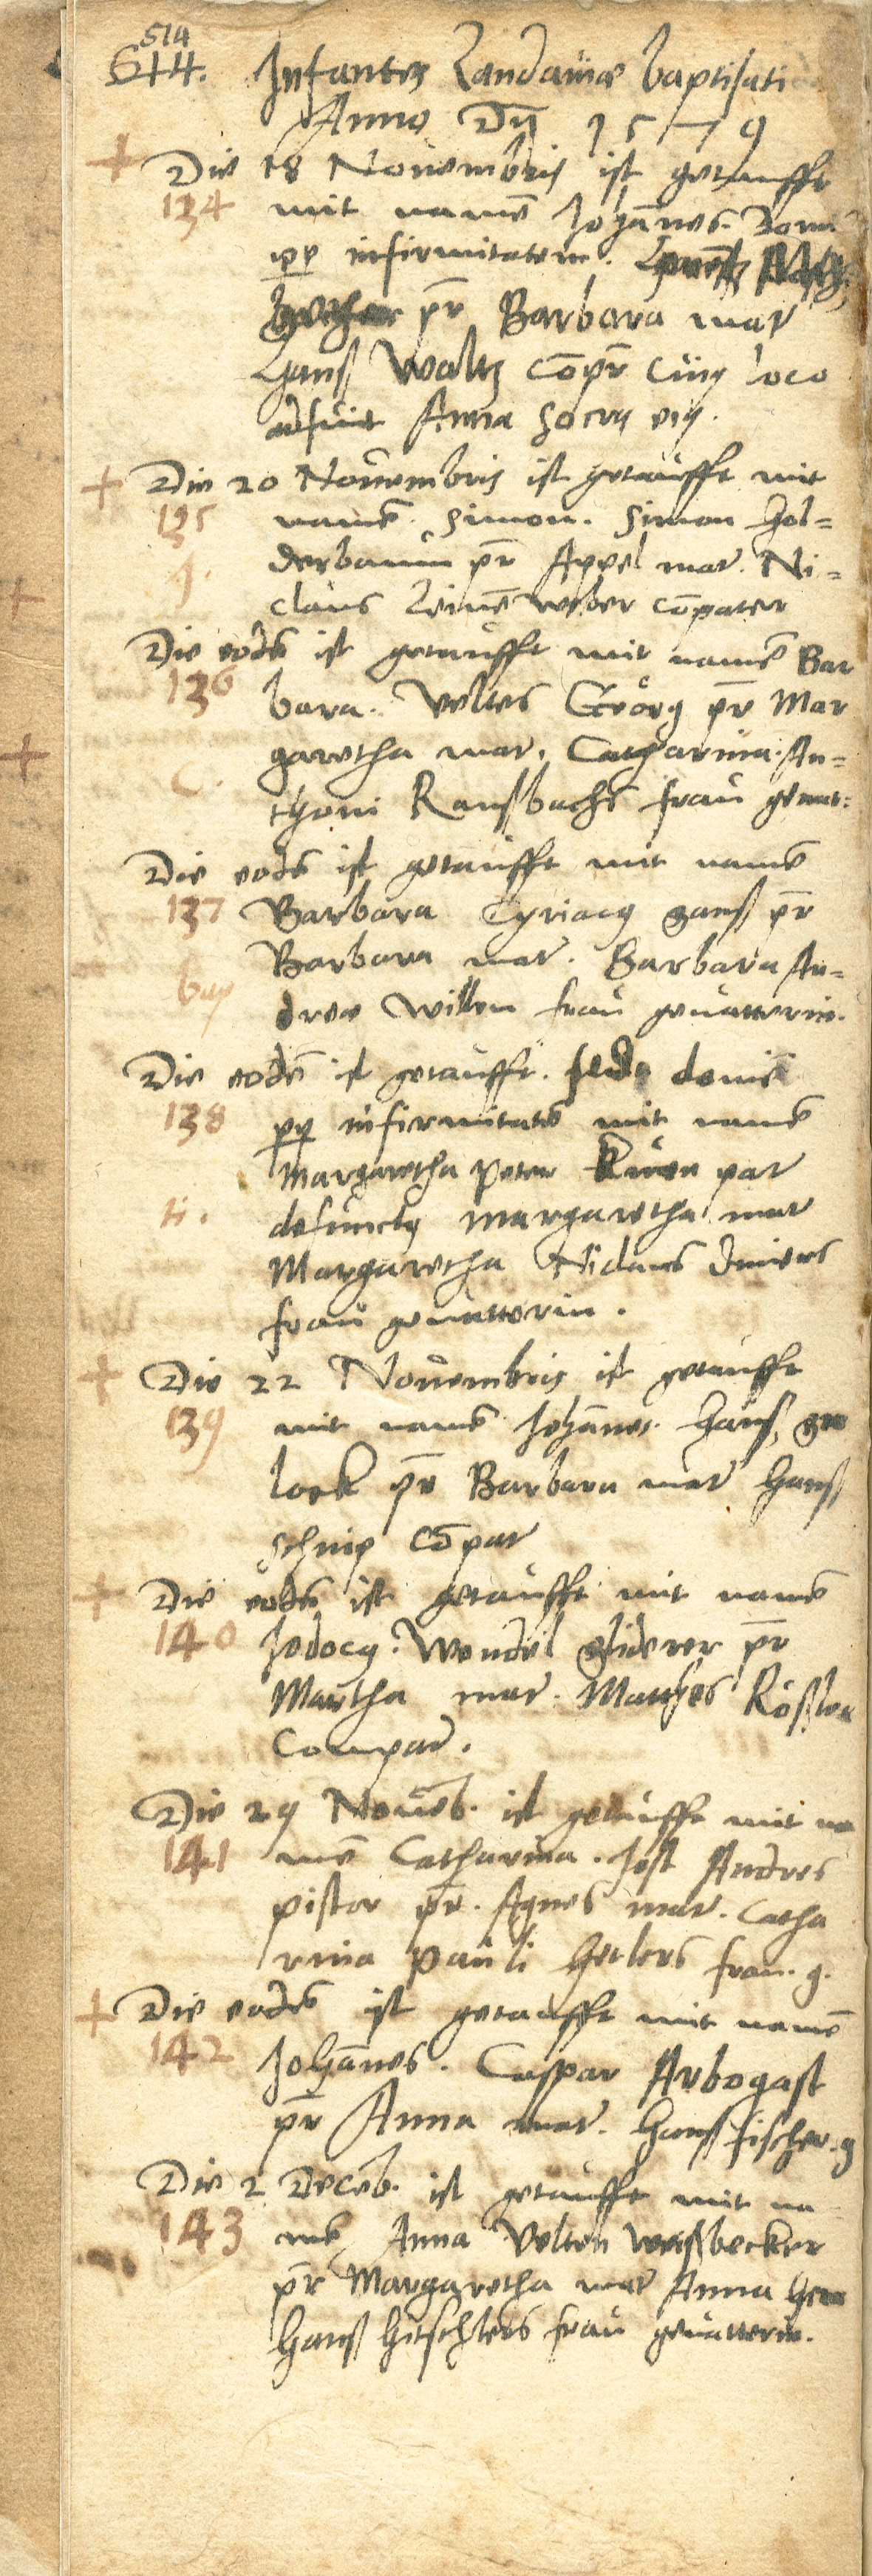 514
644. Infantes Landaviæ baptisati
Anno Dñi 1579
Die 18 Novembris ist getaufft
134 mit namē Johānes. Domi
pp infirmitatem.
pr̄ Barbara mat
Hanß Waltz cōpr̄ cuiꝯ loco
adfuit Anna socrꝯ eiꝯ.
Die 20 Novembris ist getaufft mit
135 namē Simon. Simon Hol=
derbaum pr̄ Appel mat. Ni=
claus Leinēweber cōpater
Die eodē ist getaufft mit namē Bar
136 bara. Veltes Geörg pr̄ Mar
garetha mat. Catharina An=
C. thoni Ranßbachs frau gevat:
Die eodē ist getaufft mit namē
137 Barbara Cyriacꝯ Ganß pr̄
Barbara mat. Barbara An=
dreæ Willen frau gevatterin.
Die eodē ist getaufft. domi
138 pp infirmitatē mit namē
Margaretha Peter pat
defunctꝯ Margaretha mat
Margaretha Niclaus
frau gevatterin.
Die 22 Novembris ist getaufft
139 mit namē Johānes. Hanß
lock pr̄ Barbara mat Hanß
Schnip cōpat
Die eodē ist getaufft mit namē
140 Jodocꝯ. Wendel Gliderer pr̄
Martha mat. Mathes Rößler
Compat.
Die 29 Novēb. ist getaufft mit na
141 mē Catharina. Jost Andres
pistor pr̄. Agnes mat. Catha
rina Pauli Hetlers frau. g.
Die eodē ist getaufft mit namē
142 Johānes. Caspar Arbogast
pr̄ Anna mat. Hanß Fischer. g
Die 2 Decēb. ist getaufft mit na
143 mē Anna Velten Weißbecker
pr̄ Margaretha mat Anna
Hanß Hitschlers frau gevatterin.